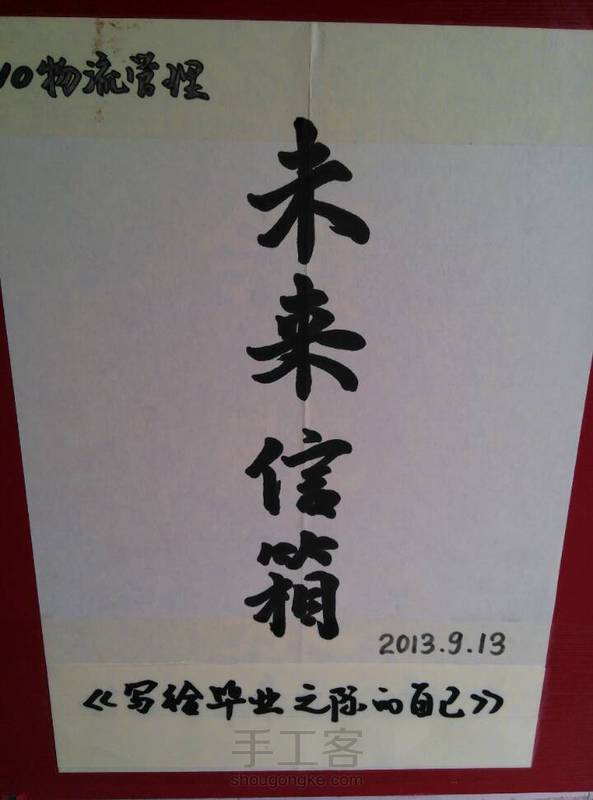 10物流管理
未来信箱
2013.9.13
《写给毕业之际的自己》
手工客
shougongke.com